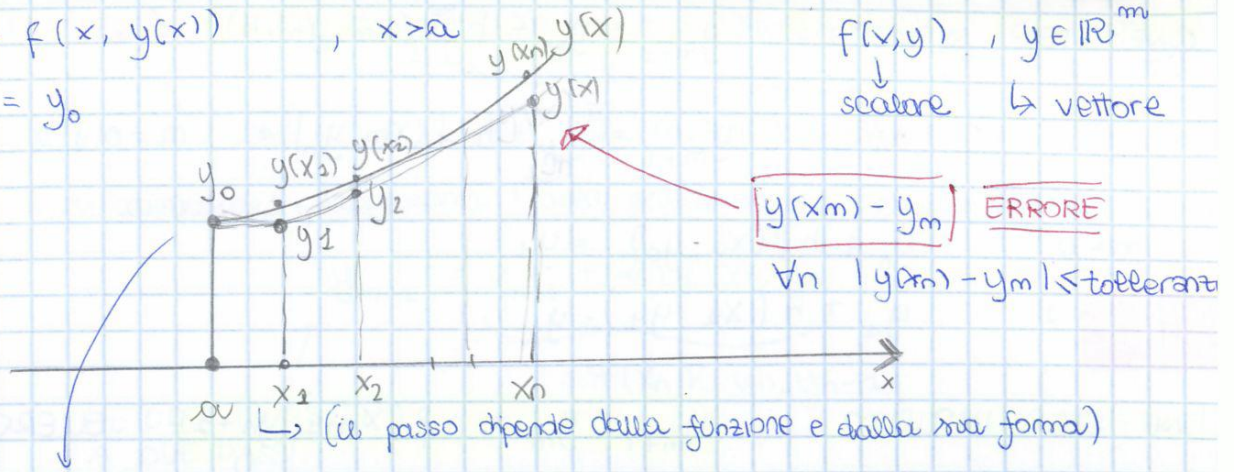 f(x, y(x)) , x>a f(x,y) , y ∈ ℝᵐ
scalare ↳ vettore
= y₀
y(xn) y(x)
y(x)
y₀ y(x₁) y(x₂)
y1 y₂
y(xm) - ym ERRORE
∀n |y(xn) - ym| ≤ tolleranz
a x₁ x₂ xn x
↳ (il passo dipende dalla funzione e dalla sua forma)